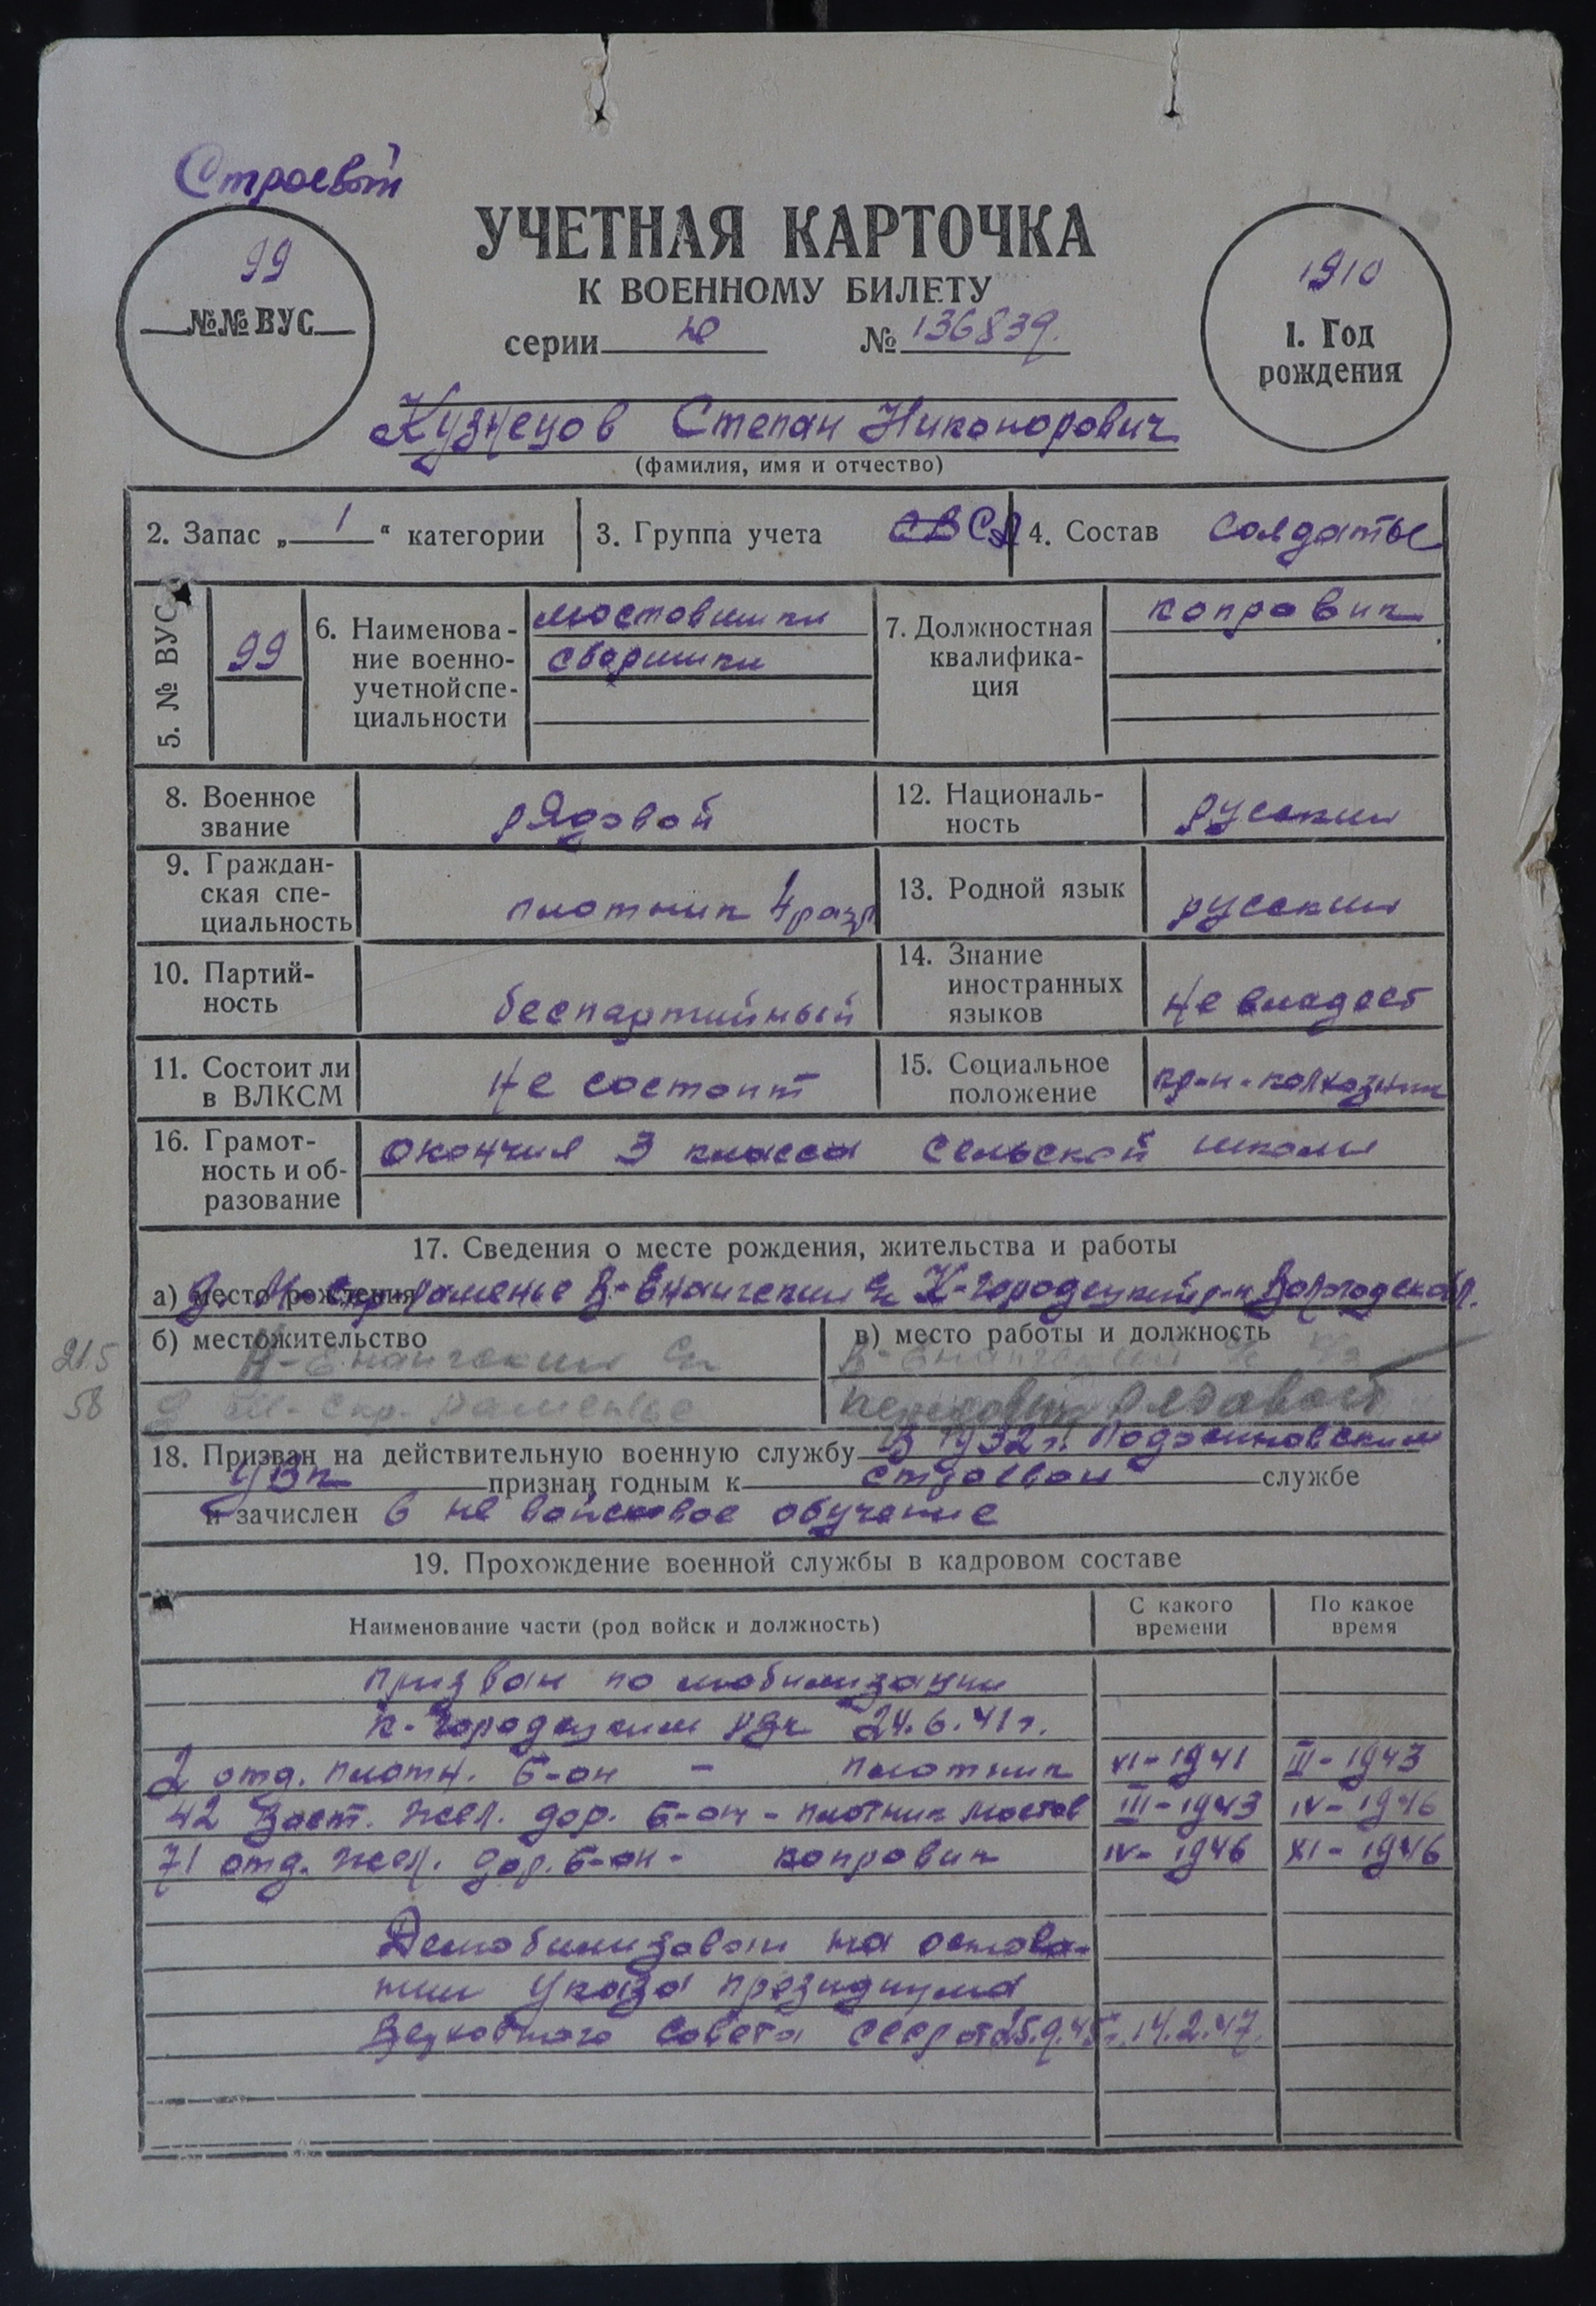 Строевой
99
№№ ВУС
УЧЕТНАЯ КАРТОЧКА
К ВОЕННОМУ БИЛЕТУ
серии Ю № 136839.
1910
1. Год
рождения
Кузнецов Степан Никонорович
(фамилия, имя и отчество)
2. Запас „ 1 “ категории
3. Группа учета СВ СА
4. Состав солдаты
5. № ВУС
99
6. Наименова-
ние военно-
учетной спе-
циальности
мостовики
сборщики
7. Должностная
квалифика-
ция
копровик
8. Военное
звание
рядовой
12. Националь-
ность
русский
9. Граждан-
ская спе-
циальность
плотник 4 разр
13. Родной язык
русский
10. Партий-
ность
беспартийный
14. Знание
иностранных
языков
не владеет
11. Состоит ли
в ВЛКСМ
не состоит
15. Социальное
положение
кр-н-колхозник
16. Грамот-
ность и об-
разование
окончил 3 класса сельской школы
17. Сведения о месте рождения, жительства и работы
а) место рождения
раменье В-Енангский с/с К-Городецкий р-н Вологодская обл.
б) местожительство
Н-Енангский с/с
д. раменье
215
58
в) место работы и должность
В-Енангский с/с
рядовой
18. Призван на действительную военную службу в 1932 г. Подосиновским
УВК признан годным к строевой службе
и зачислен в не войсковое обучение
19. Прохождение военной службы в кадровом составе
Наименование части (род войск и должность)
С какого
времени
По какое
время
призван по мобилизации
К-Городецким РВК 24.6.41г.
2 отд. плотн. б-он - плотник XI-1941 III-1943
42 Восст. жел. дор. б-он - плотник мостов III-1943 IV-1946
71 отд. жел. дор. б-он - копровик IV-1946 XI-1946
Демобилизован на основа-
нии указа президиума
Верховного Совета СССР от 25.9.45г. 14.2.47.